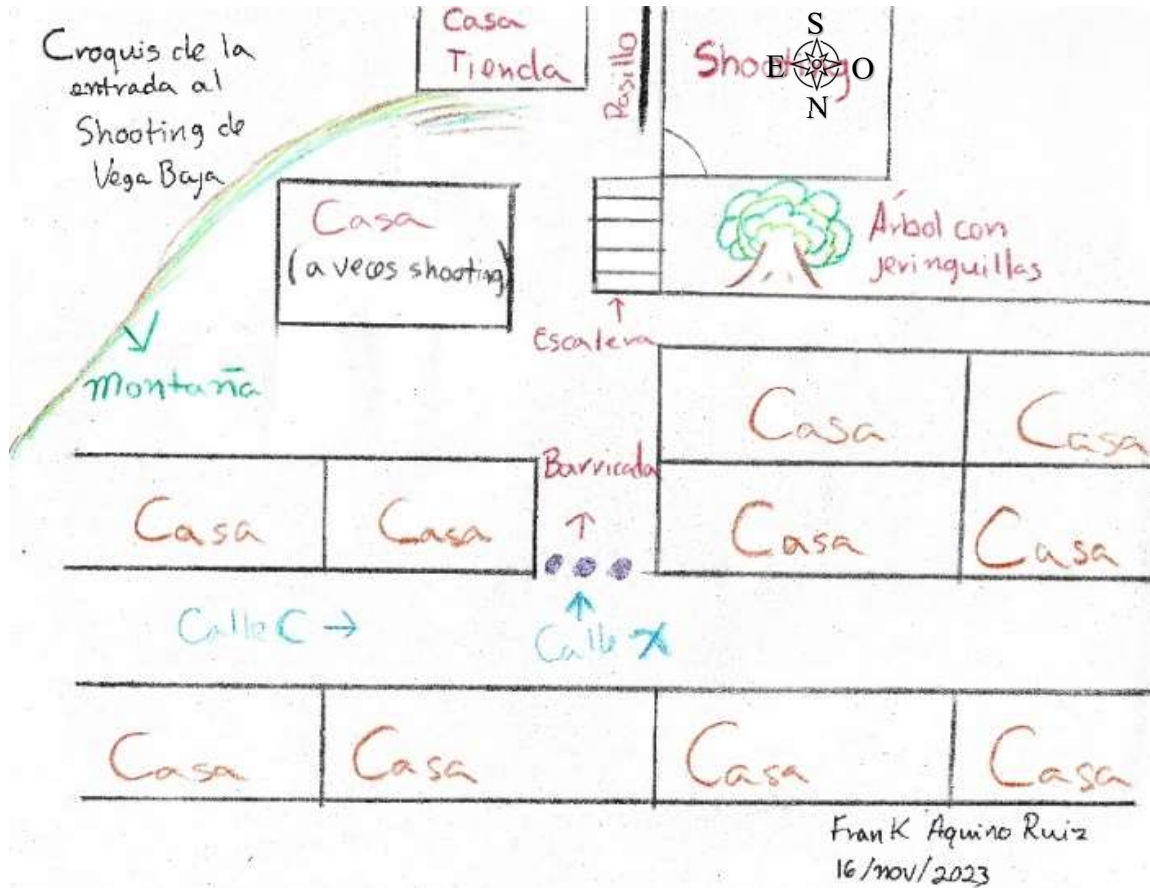 Croquis de la
entrada al
Shooting de
Vega Baja
Casa
Tienda
Pasillo
Shooting
S
E
O
N
Casa
(a veces shooting)
Árbol con
jeringuillas
Escalera
Montaña
Casa
Casa
Barricada
Casa
Casa
Casa
Casa
Calle C →
Calle X
Casa
Casa
Casa
Casa
Frank Aquino Ruiz
16/nov/2023